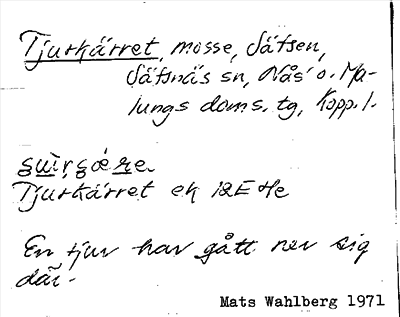 Tjurkärret, mosse, Säfsen,
Säfsnäs sn, Nås o. Ma-
lungs doms. tg, Kopp. l.
Tjurkärret ek 12E He
En tjur har gått ner sig
där.
Mats Wahlberg 1971